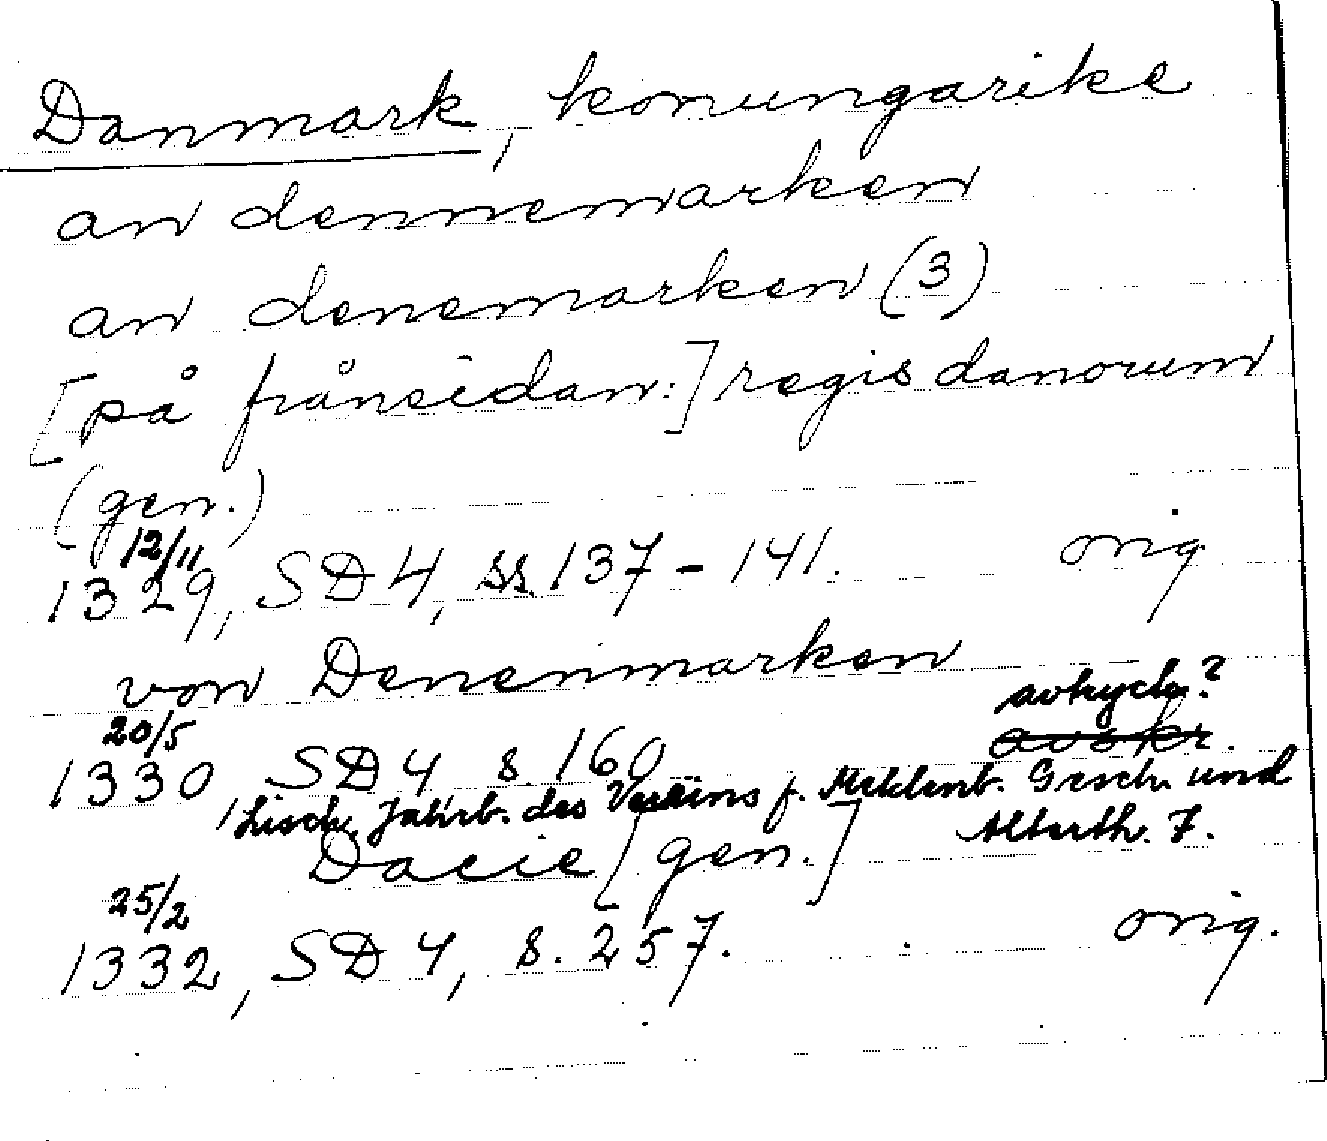 Danmark, konungarike
an dennemarken
an denemarken (3)
[på frånsidan:] regis danorum
(gen.)
12/11
1329, SD 4, ss 137-141. orig
von Denenmarken
20/5 avtryck?
1330 SD 4 s. 160 avskr.
Lisch, Jahrb. des Vereins f. Meklenb. Gesch. und
Alterth. 7.
Dacie [gen.]
25/2
1332, SD 4, s. 257. orig.